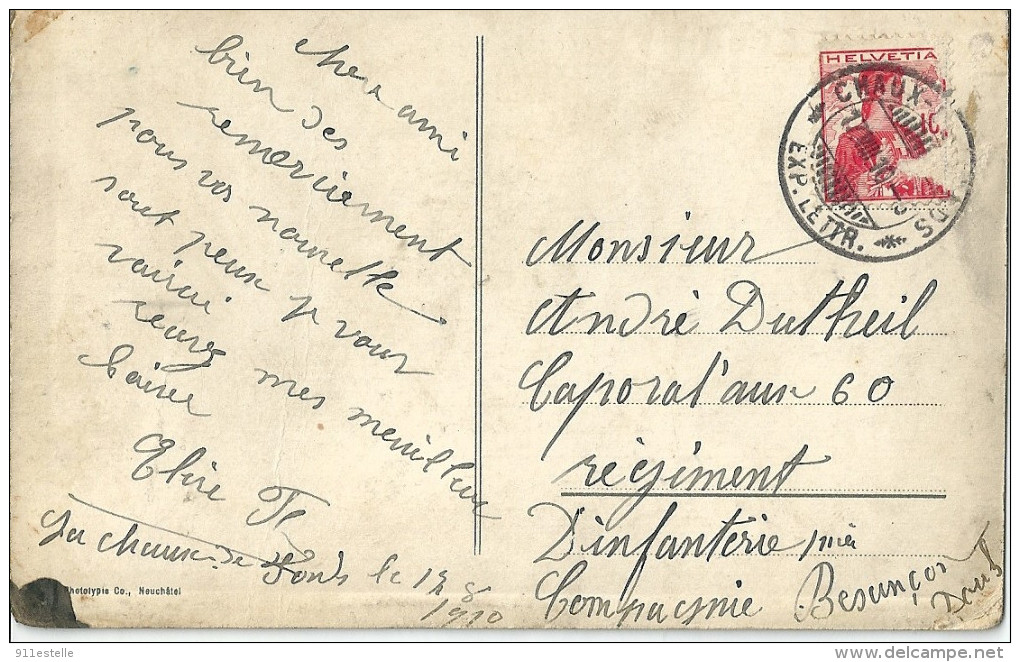 cher ami
bien des
remerciement
pour vos nouvelle
sont peux je vous
mes meuilleur
baiser
Elise
La chaux-de Fonds le 17 8
1910
Phototypie Co., Neuchâtel
HELVETIA
10
CHAUX-DE-FONDS
EXP. LETTR.
Monsieur
André Dutheil
Caporal'aux 60
régiment
D'infanterie 1mier
Compacgnie Besançon
Doubs
911estelle
delcampe.net